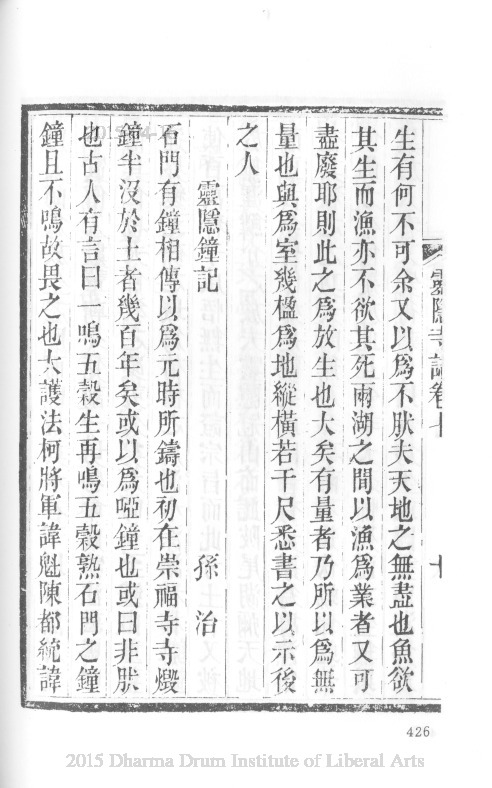 靈隱寺誌卷七
十
生有何不可余又以爲不肰夫天地之無盡也魚欲
其生而漁亦不欲其死兩湖之間以漁爲業者又可
盡廢耶則此之爲放生也大矣有量者乃所以爲無
量也與爲室幾楹爲地縱橫若干尺悉書之以示後
之人
靈隱鐘記
孫治
石門有鐘相傳以爲元時所鑄也初在崇福寺寺燬
鐘半沒於土者幾百年矣或以爲啞鐘也或曰非肰
也古人有言曰一鳴五穀生再鳴五穀熟石門之鐘
鐘且不鳴故畏之也大護法柯將軍諱魁陳都統諱
426
2015 Dharma Drum Institute of Liberal Arts